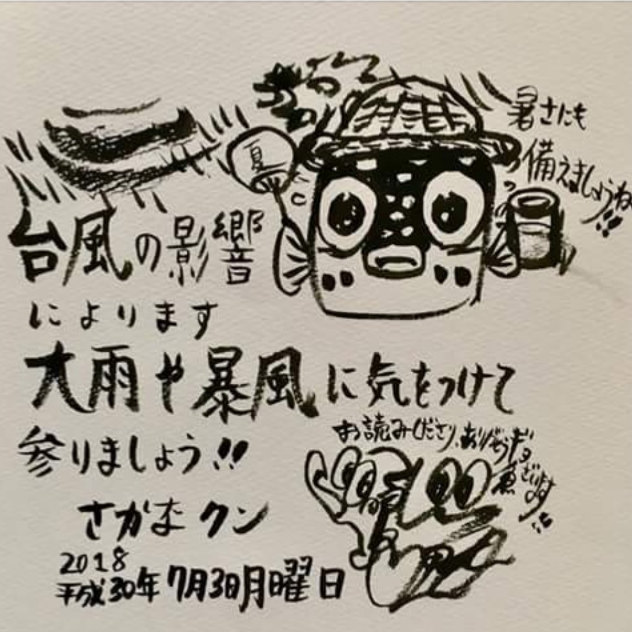 暑さにも
備えましょうね!!
夏
台風の影響
によります
大雨や暴風に気をつけて
参りましょう!!
お読みくださり、ありがとうギョ
魚ざいます!!
さかなクン
2018
平成30年7月3日月曜日